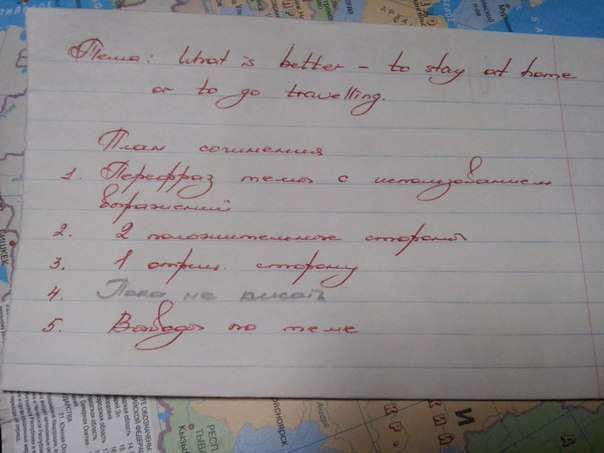 Тема: What is better – to stay at home
or to go travelling.
План сочинения
1. Перефраз темы с использованием
выражений
2. 2 положительные стороны
3. 1 отриц. сторону
4. Пока не писать
5. Выводы по теме
РЕСП
ТЫВА
Красноярск
И
БИШКЕК